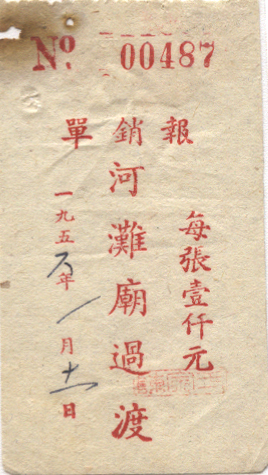 No. 00487
報銷單
每張壹仟元
河灘廟過渡
一九五五年一月十一日